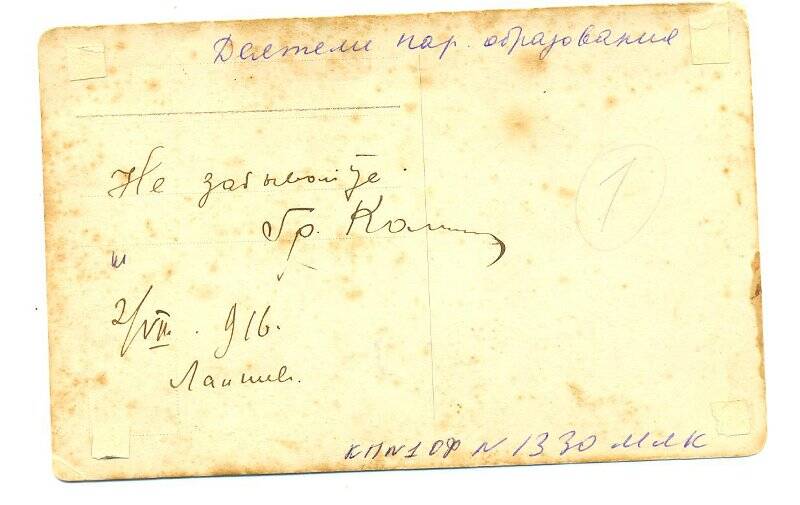 Деятели нар. образования
Не забывайте.
Гр.
1
2/VII. 916.
Лаишев.
КПN1 ОФ N 1330 МЛК